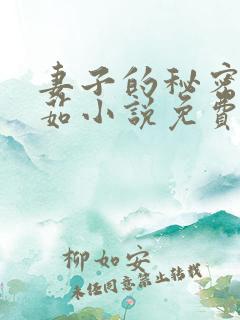 妻子的秘密
茹小说免费
柳如安
未经同意禁止转载